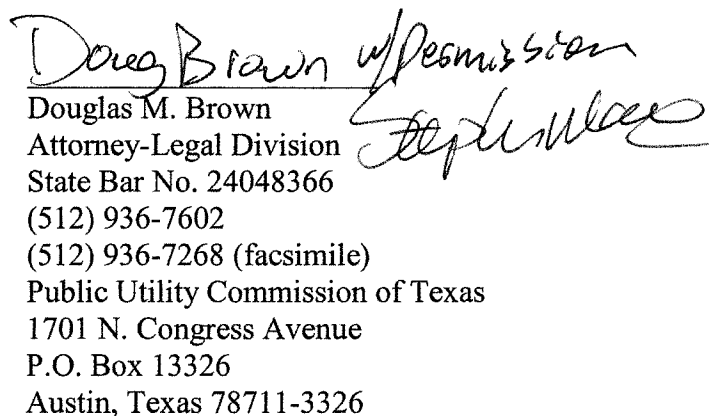 Doug Brown w/Permission
Douglas M. Brown
Attorney-Legal Division
State Bar No. 24048366
(512) 936-7602
(512) 936-7268 (facsimile)
Public Utility Commission of Texas
1701 N. Congress Avenue
P.O. Box 13326
Austin, Texas 78711-3326